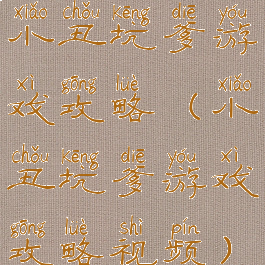 xiǎo chǒu kēng diē yóu
小丑坑爹游
xì gōng lüè xiǎo
戏攻略（小
chǒu kēng diē yóu xì
丑坑爹游戏
gōng lüè shì pín
攻略视频）